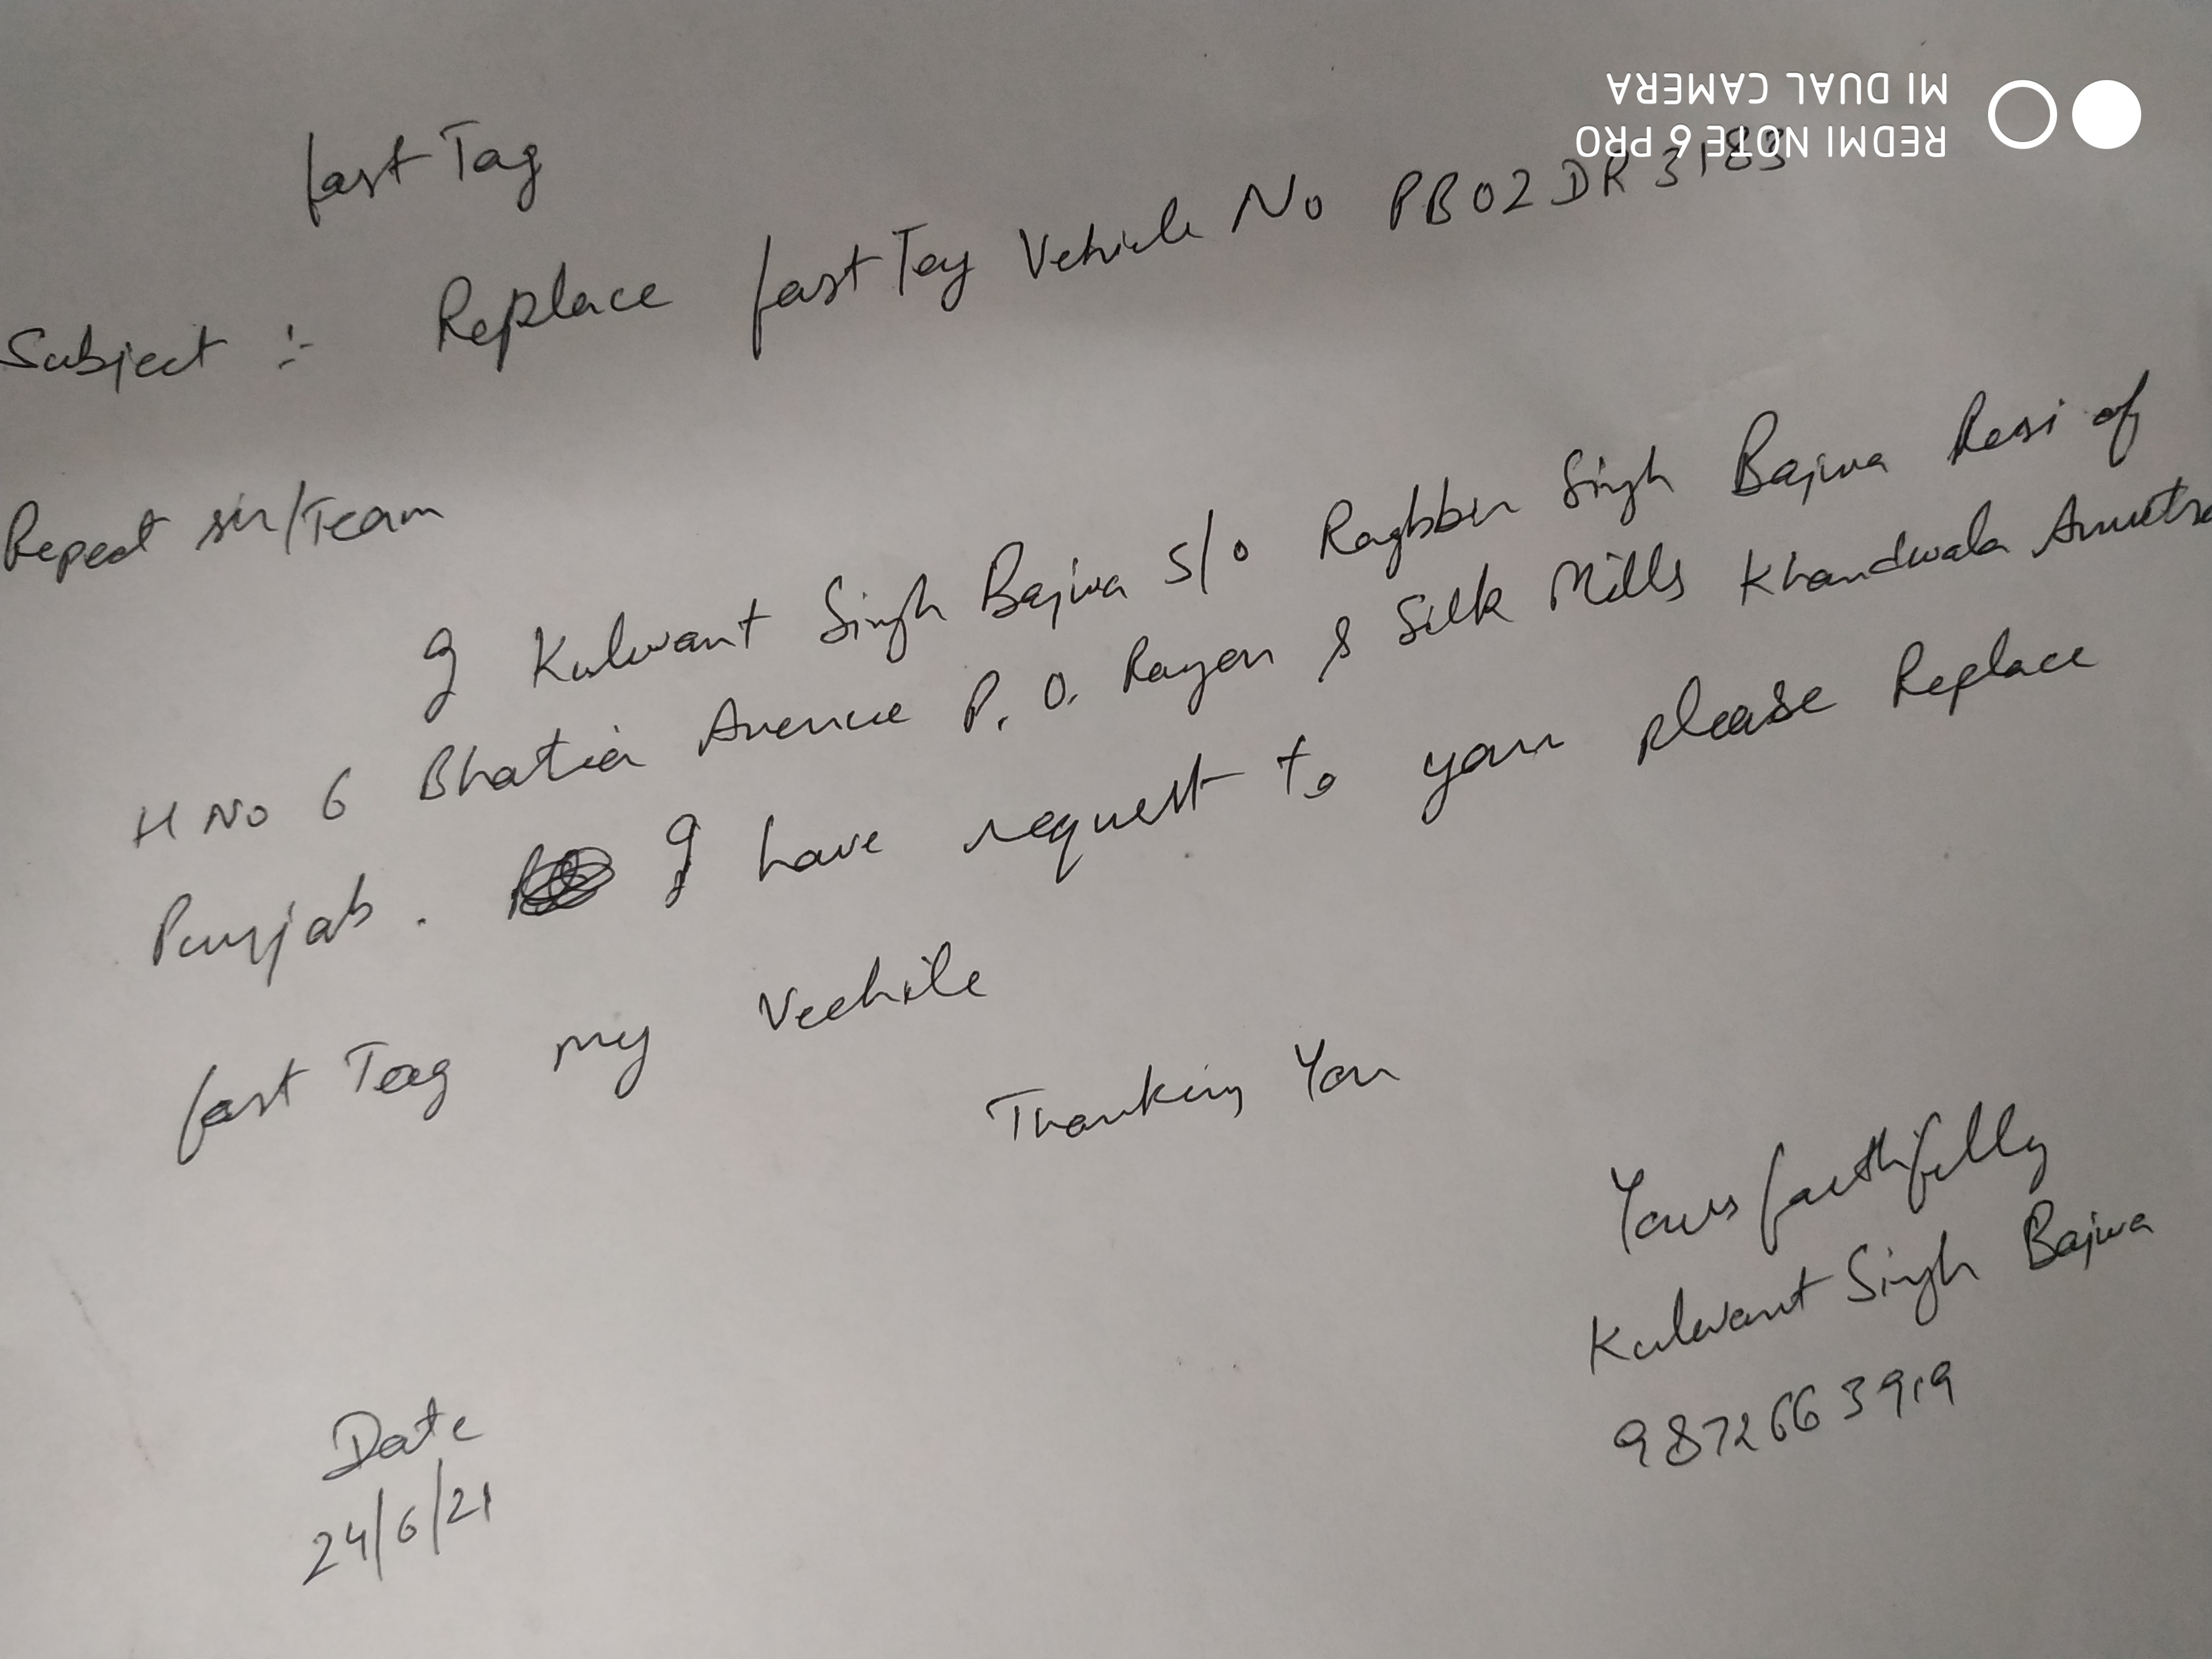 fast Tag
Subject :- Replace fast Tag Vehicle No PB02DR3183
Repect sir/Team
I Kulwant Singh Bajwa S/o Ragbbir Singh Bajwa Resi of
H No 6 Bhatia Avenue P.O. Rayon & Silk Mills Khandwala
Punjab. I have request to your please Replace
fast Tag my Vechile
Thanking You
Yours faithfully
Kulwant Singh Bajwa
9872663919
Date
24/6/21
REDMI NOTE 6 PRO
MI DUAL CAMERA